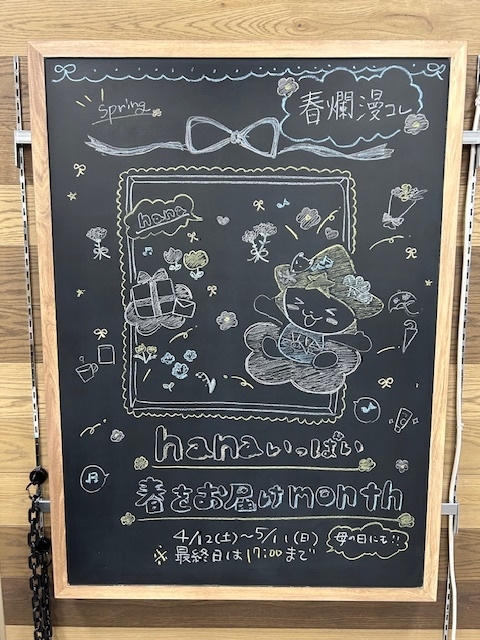 spring
春爛漫コレ
hana
hanaいっぱい
春をお届けmonth
4/12(土)〜5/11(日)
※最終日は17:00まで
母の日にも!!